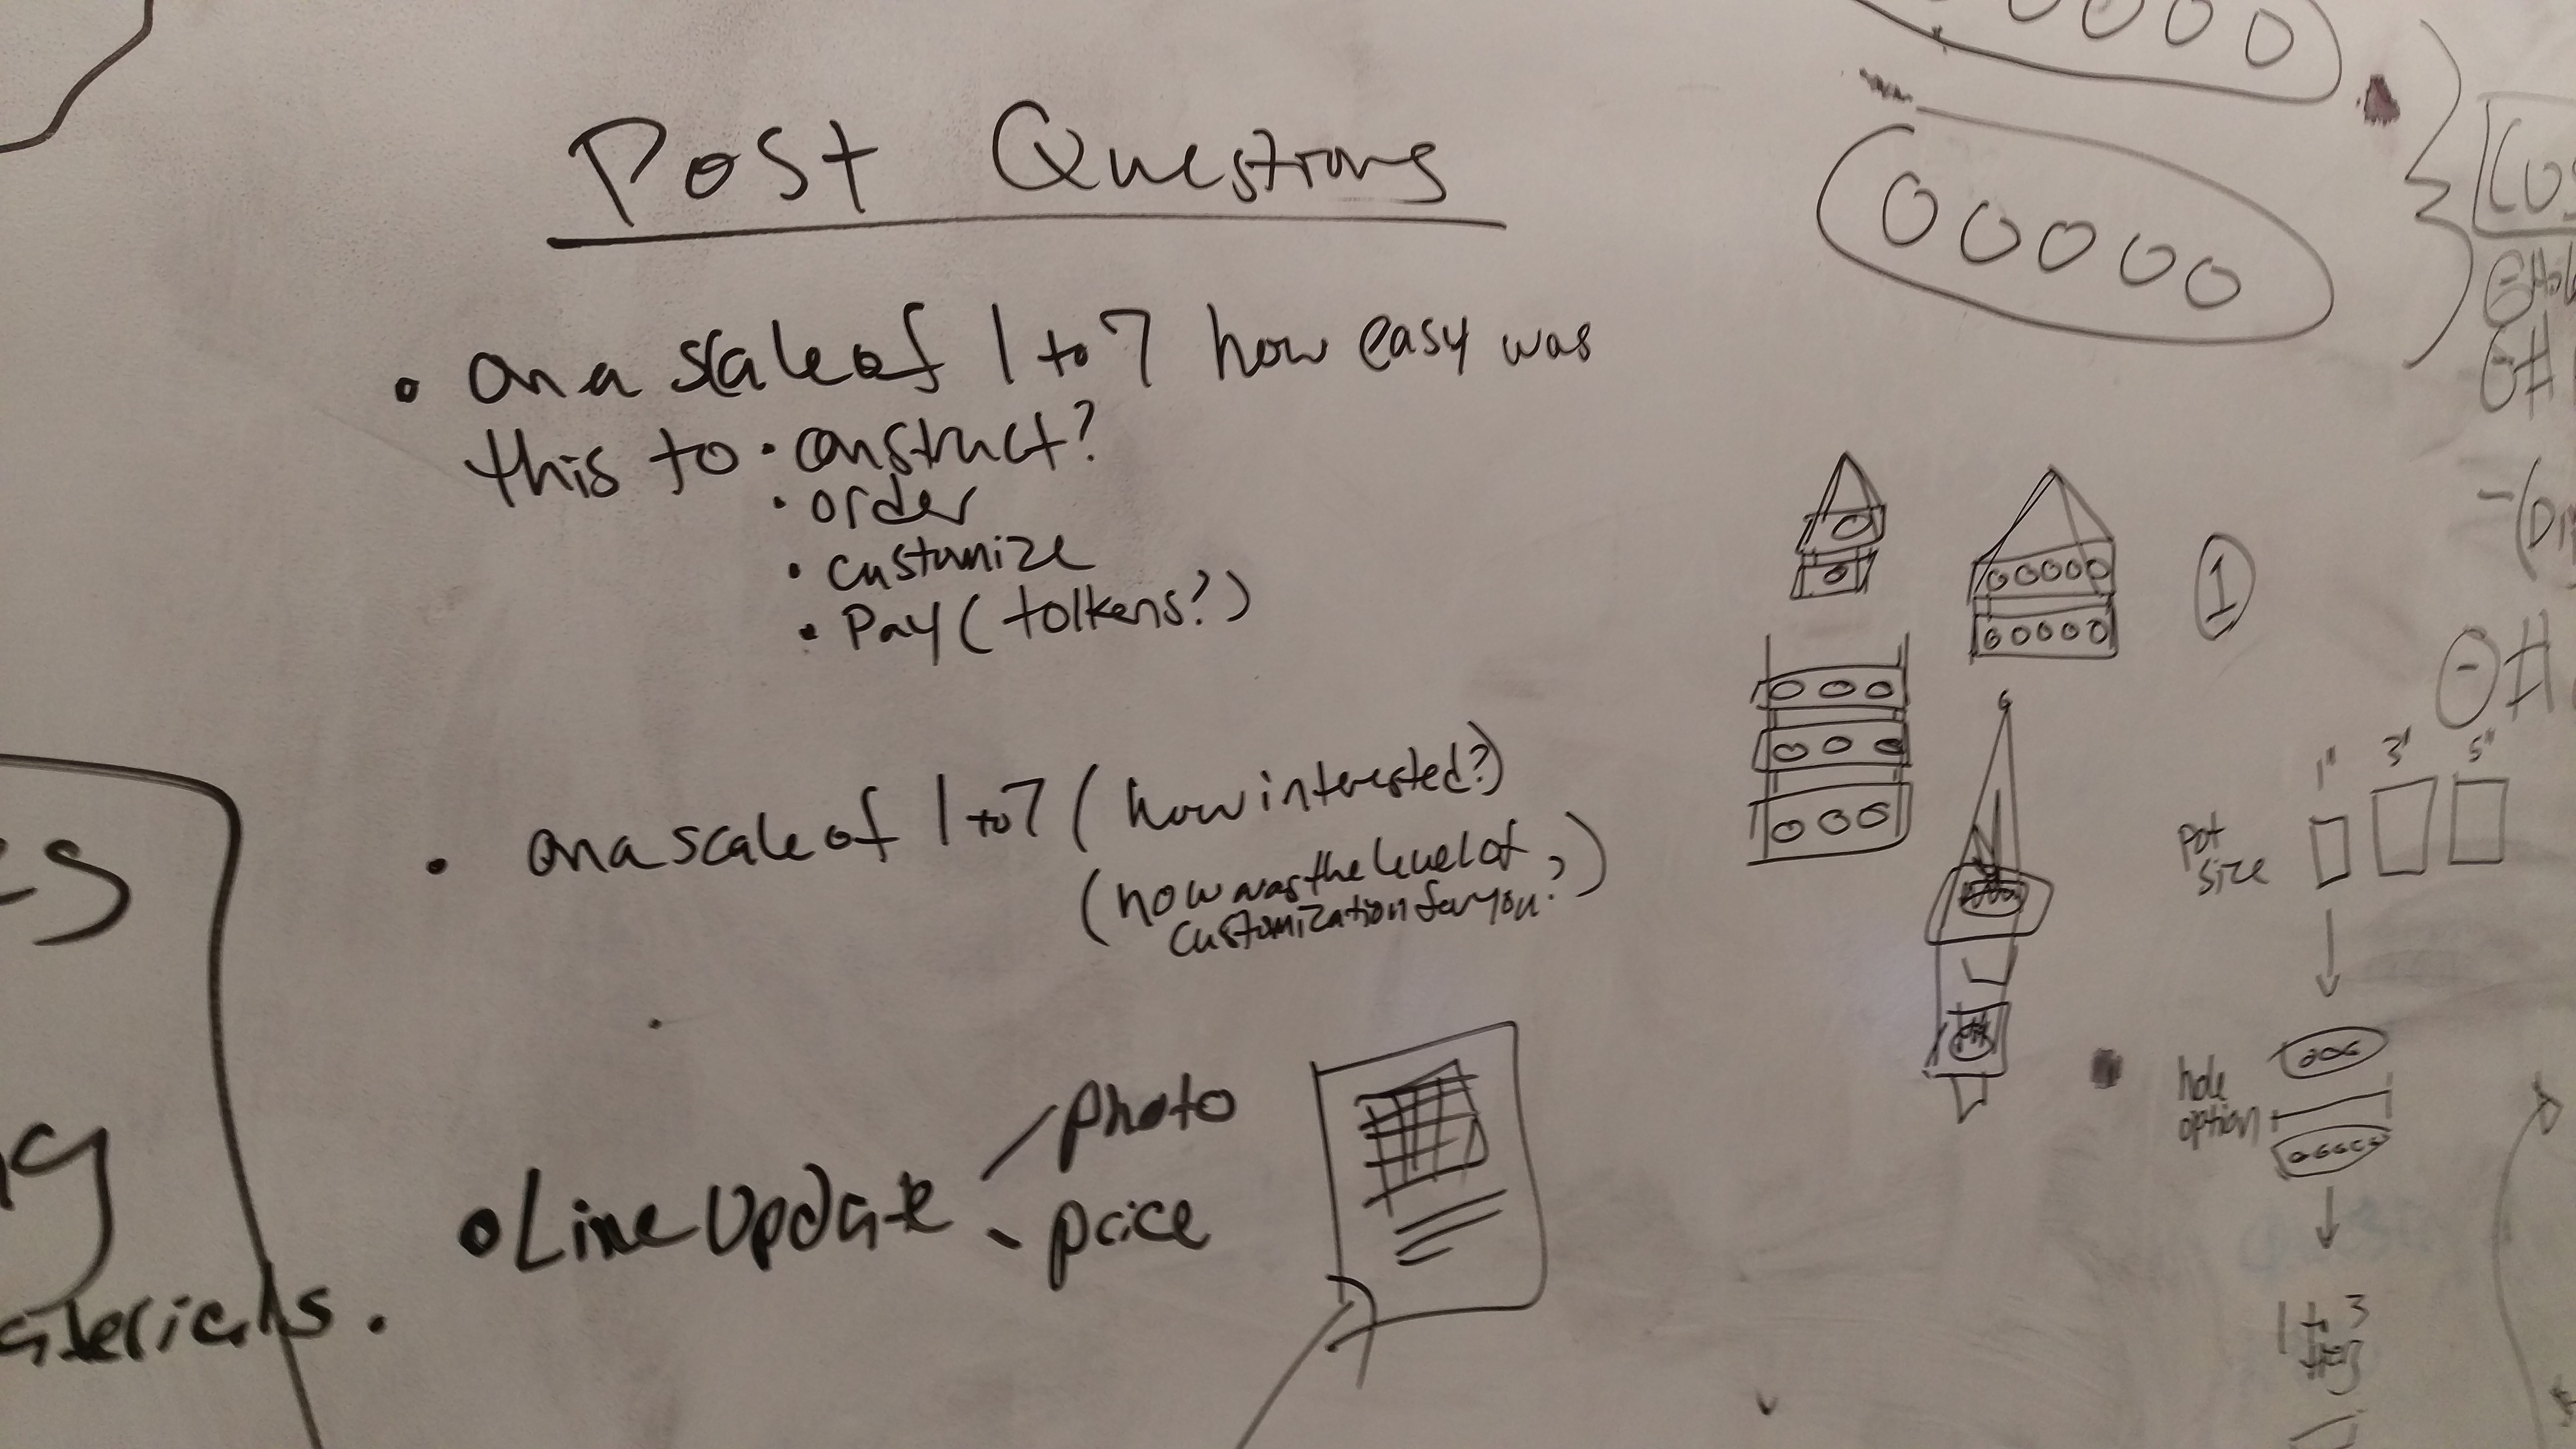 Post Questions
• on a scale of 1 to 7 how easy was
this to • construct?
• order
• customize
• Pay (tolkens?)
• on a scale of 1 to 7 (how interested?)
(how was the level of
customization for you?)
• Line Update
photo
price
aterials.
1
1" 3" 5"
pot
size
hole
option
1 to 3
tiers